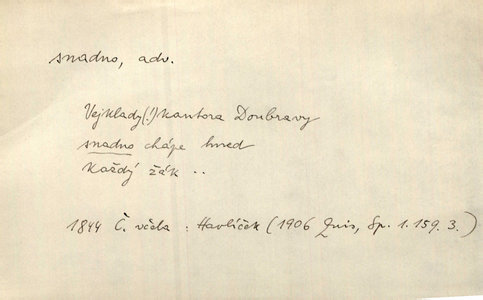 snadno, adv.
Vejklady(!) kantora Doubravy
snadno chápe hned
každý žák ..
1844 Č. včela : Havlíček (1906 Quis, Sp. 1. 159. 3.)